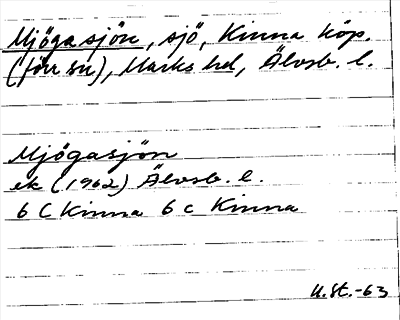 Mjögasjön, sjö, Kinna köp.
(förr sn), Marks hd, Älvsb. l.
Mjögasjön
ek (1962) Älvsb. l.
6 C Kinna 6 c Kinna
U.St.-63